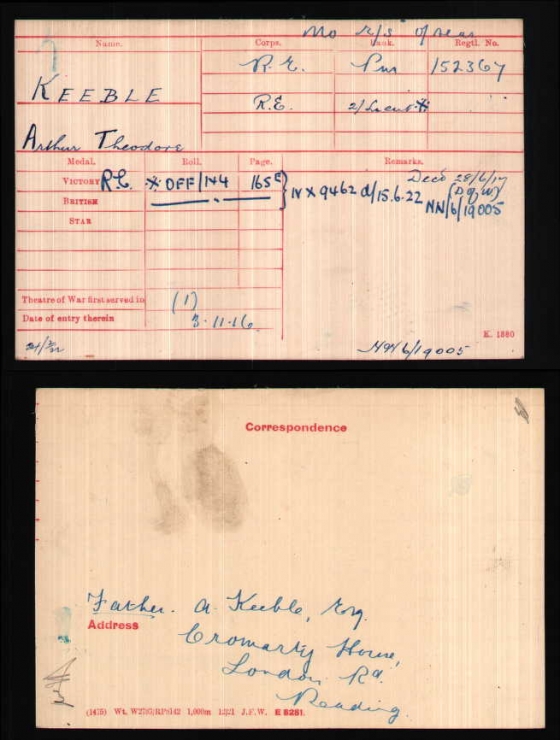 Name. Corps. Rank. Regtl. No.
KEEBLE R.E. Pnr 152367
Arthur Theodore R.E. 2/Lieut *
Medal. Roll. Page. Remarks.
VICTORY R.E. * OFF/144 165E IV X 9462 d/15.6.22
Decd 28/6/17
(D of W)
NN/6/19005
BRITISH
STAR
Theatre of War first served in (1)
Date of entry therein 3-11-16
K. 1380
NN/6/19005
Correspondence
Father. A. Keeble, Esq.
Address Cromarty House,
London Rd.
Reading.
1,000m J.F.W. E 8281.